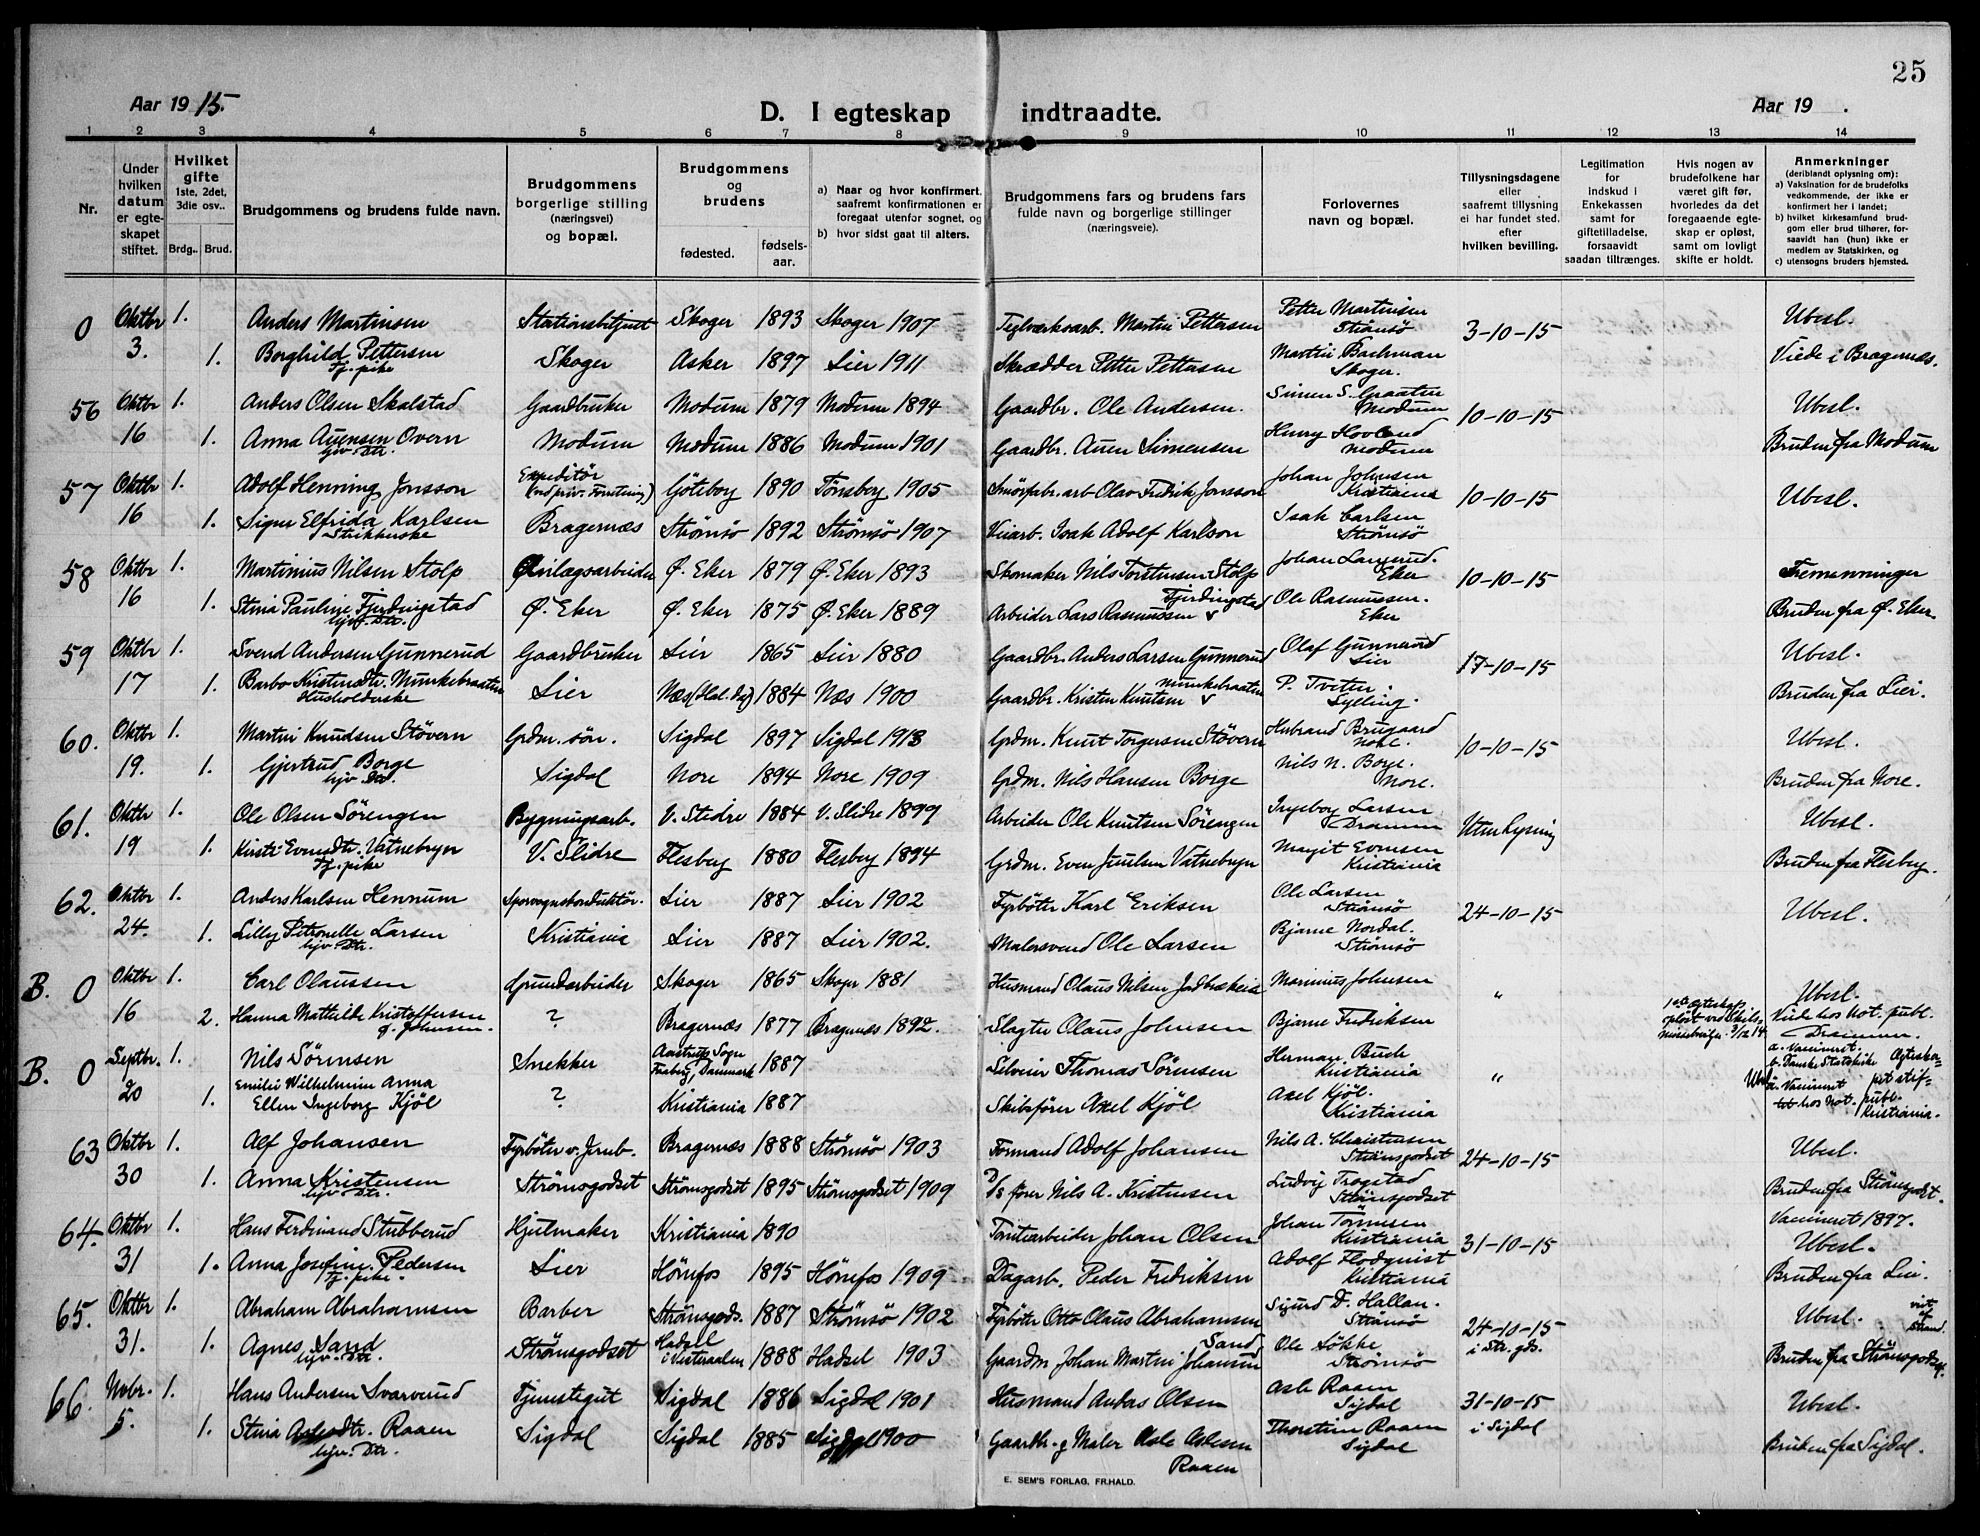 25
Aar 1915.
D. I egteskap indtraadte.
Aar 19 .
1 2 3 4 5 6 7 8 9 10 11 12 13 14
Nr.
Under hvilken datum er egteskapet stiftet.
Hvilket gifte 1ste, 2det, 3die osv..
Brdg.. Brud.
Brudgommens og brudens fulde navn.
Brudgommens borgerlige stilling (næringsvei) og bopæl.
Brudgommens og brudens
fødested. fødselsaar.
a) Naar og hvor konfirmert, saafremt konfirmationen er foregaat utenfor sognet, og
b) hvor sidst gaat til alters.
Brudgommens fars og brudens fars fulde navn og borgerlige stillinger (næringsveie).
Forlovernes navn og bopæl.
Tillysningsdagene eller saafremt tillysning ei har fundet sted. efter hvilken bevilling.
Legitimation for indskud i Enkekassen samt for giftetilladelse, forsaavidt saadan tiltrænges.
Hvis nogen av brudefolkene har været gift før, hvorledes da det foregaaende egteskap er opløst, samt om lovligt skifte er holdt.
Anmerkninger (deriblandt oplysning om):
a) Vaksination for de brudefolks vedkommende, der ikke er konfirmert her i landet;
b) hvilket kirkesamfund brudgom eller brud tilhører, forsaavidt han (hun) ikke er medlem av Statskirken, og
c) utensogns bruders hjemsted.
0 Oktbr 1. Anders Martinsen Stationsbetjent Skoger 1893 Skoger 1907 Teglværksarb. Martin Pettersen Petter Martinsen Strømsø 3-10-15 Ubesl.
3. 1. Borghild Pettersen Tj. pike Skoger Asker 1897 Lier 1911 Skrædder Petter Pettersen Martin Bachman Skoger. Viede i Bragernæs.
56 Oktbr 1. Anders Olsen Skalstad Gaardbruker Modum 1879 Modum 1894 Gaardbr. Ole Andersen. Simen S. Graaten Modum 10-10-15 Ubesl.
16 1. Anna Auensen Overn hjv. Dtr. Modum Modum 1886 Modum 1901 Gaardbr. Auen Simensen Henry Hovland Modum Bruden fra Modum
57 Oktbr 1. Adolf Henning Jonsson Expeditør Göteborg 1890 Tønsberg 1905 Smörfabr. arb Olav Fredrik Jonsson Johan Johnsen Kristiania 10-10-15 Ubesl.
16 1. Signe Elfrida Karlsen Strikkerske Bragernæs Strømsø 1892 Strømsø 1907 Isak Adolf Karlson Isak Carlsen Strømsø
58 Oktbr 1. Martinius Nilsen Stolp Anlægsarbeider Ø. Eker 1879 Ø. Eker 1893 Skomaker Nils Torstensen Stolp Johan Langerud. Eker 10-10-15 Fremanninger
16 1. Stina Pauline Fjerdingstad hjv. Dtr. Ø. Eker Ø. Eker 1875 Ø. Eker 1889 Arbeider Lars Rasmussen Fjerdingstad Ole Rasmussen. Eker Bruden fra Ø. Eker
59 Oktbr 1. Svend Andersen Gunnerud Gaardbruker Lier 1865 Lier 1880 Gaardbr. Anders Larsen Gunnerud Olaf Gunnerud Lier 17-10-15 Ubesl.
17 1. Barbo Kristensdtr. Munkebraaten Husholderske Lier Næs (Hal.dal) 1884 Næs 1900 Gaardbr. Kristen Knutsen Munkebraaten P. Tveten. Sylling. Bruden fra Lier.
60. Oktbr 1. Martin Knudsen Støvern Grdm. søn. Sigdal 1897 Sigdal 1913 Grdm. Knut Torgersen Støvern Herbrand Brugaard Nore. 10-10-15 Ubesl.
19. 1. Gjertrud Borge hjv Dtr. Sigdal Nore 1894 Nore 1909 Grdm. Nils Hansen Borge Nils N. Borge. Nore. Bruden fra Nore.
61. Oktbr 1. Ole Olsen Sörengen Bygningsarb. V. Slidre 1884 V. Slidre 1899 Arbeider Ole Knutsen Sörengen Ingeborg Larsen Drammen Uten lysning Ubesl.
19 1. Kirsti Evensdtr. Vatnebryn Tj. pike V. Slidre Flesberg 1880 Flesberg 1894 Grdm. Even Juulsen Vatnebryn Margit Evensen Kristiania Bruden fra Flesberg.
62. Oktbr 1. Anders Karlsen Hennum Sporvognskonduktør. Lier 1887 Lier 1902 Fyrbøter Karl Eriksen Ole Larsen Strømsø 24-10-15 Ubesl.
24. 1. Lilly Petronelle Larsen hjv. Dtr. Kristiania Lier 1887 Lier 1902. Malersvend Ole Larsen Bjarne Nordal. Strømsø
B. 0 Oktbr 1. Carl Olaussen Grundarbeider Skoger 1865 Skoger 1881 Husmand Olaus Nilsen Marinius Johnsen " Ubesl.
16 2. Hanna Mathilde Kristoffersen f. Johnsen. ? Bragernæs 1877 Bragernæs 1892. Slagter Olaus Johnsen Bjarne Fredriksen 1ste egteskap opløst ved Skilsmissebevilgn. 3/12 14. Viede hos Not. publ. Drammen.
B. 0 Septbr. 1. Nils Sörensen Snekker Aastrup Sogn Faaborg, Danmark 1887 Thomas Sörensen Herman Buch Kristiania " a. Vaccineret. b. Danske Statskirke Egteskapet stif-
20 1. Emilie Wilhelmine Anna Ellen Ingeborg Kjøl ? Kristiania 1887 Skibsfører Axel Kjöl Axel Kjöl. Kristiania Ubesl. a. Vaccineret tet hos Not. publ. Kristiania.
63 Oktbr 1. Alf Johansen Fyrbøter v. Jernb. Bragernæs 1888 Strømsø 1903 Formand Adolf Johansen Nils A. Christensen Strømsgodset 24-10-15 Ubesl.
30 1. Anna Kristensen hjv Dtr. Strømsgodset Strømsgodset 1895 Strømsgodset 1909 D/s fører Nils A. Kristensen Ludvig Trogstad Strømsgodset Bruden fra Strømsgodset.
64. Oktbr 1. Hans Ferdinand Stubberud Hjulmaker Kristiania 1890 Tomtearbeider Johan Olsen Johan Tönnesen Kristiania 31-10-15 Vaccineret 1897. Ubesl.
31 1. Anna Josefine Pedersen Tj. pike. Lier Hønefos 1895 Hønefos 1909 Dagarb. Peder Fredriksen Adolf Flodquist Kristiania Bruden fra Lier.
65. Oktbr 1. Abraham Abrahamsen Barber Strømsgods. 1887 Strømsø 1902 Fyrbøter Otto Claus Abrahamsen Sigurd D. Hallan. Strømsø 24-10-15 i Str. gds. Ubesl. viet af Strand.
31. 1. Agnes Sand hjv. Dtr. Strømsgodset Hadsel i Vesteraalen 1888 Hadsel 1903 Gaardm. Johan Martin Johansen Sand Ole Løkke Strømsø Bruden fra Strømsgodset.
66. Novbr. 1. Hans Andersen Svarverud Tjenestegut Sigdal 1886 Sigdal 1901 Husmand Anders Olsen Asle Raaen Sigdal 31-10-15 i Sigdal Ubesl.
5. 1. Stina Aslesdtr. Raaen hjv. Dtr. Sigdal Sigdal 1885 Sigdal 1900 Gaardbr. og Maler Asle Aslesen Raaen Thorstein Raaen Sigdal Bruden fra Sigdal.
E. SEM'S FORLAG, FR.HALD.